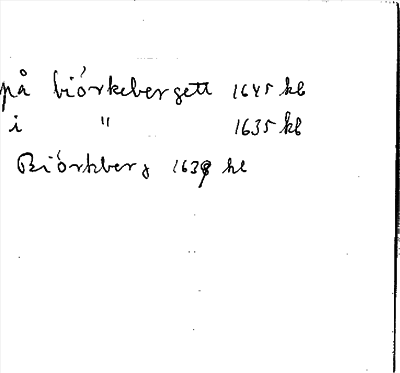 på biórkebergett 1645 kb
i " 1635 kb
Biórkberg 1639 kl